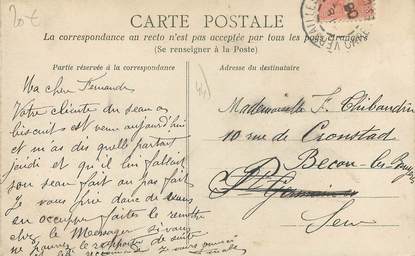 20 €
CARTE POSTALE
La correspondance au recto n'est pas acceptée par tous les pays étrangers
(Se renseigner à la Poste)
Partie réservée à la correspondance
Adresse du destinataire
Ma chère Fernande
Votre cliente du seau a
biscuits est venue aujourd'hui
et m'as dis quelle partait
jeudi et qu'il lui fallait
son seau fait ou pas fait
Je vous prie donc de vous
en occuper faites le remettre
chez le Messager si vous
ne pouvez le rapporter de suite
Mademoiselle F. Thibaudin
10 rue de Cronstad
Becon-les-Bruyères
Germain
Seine